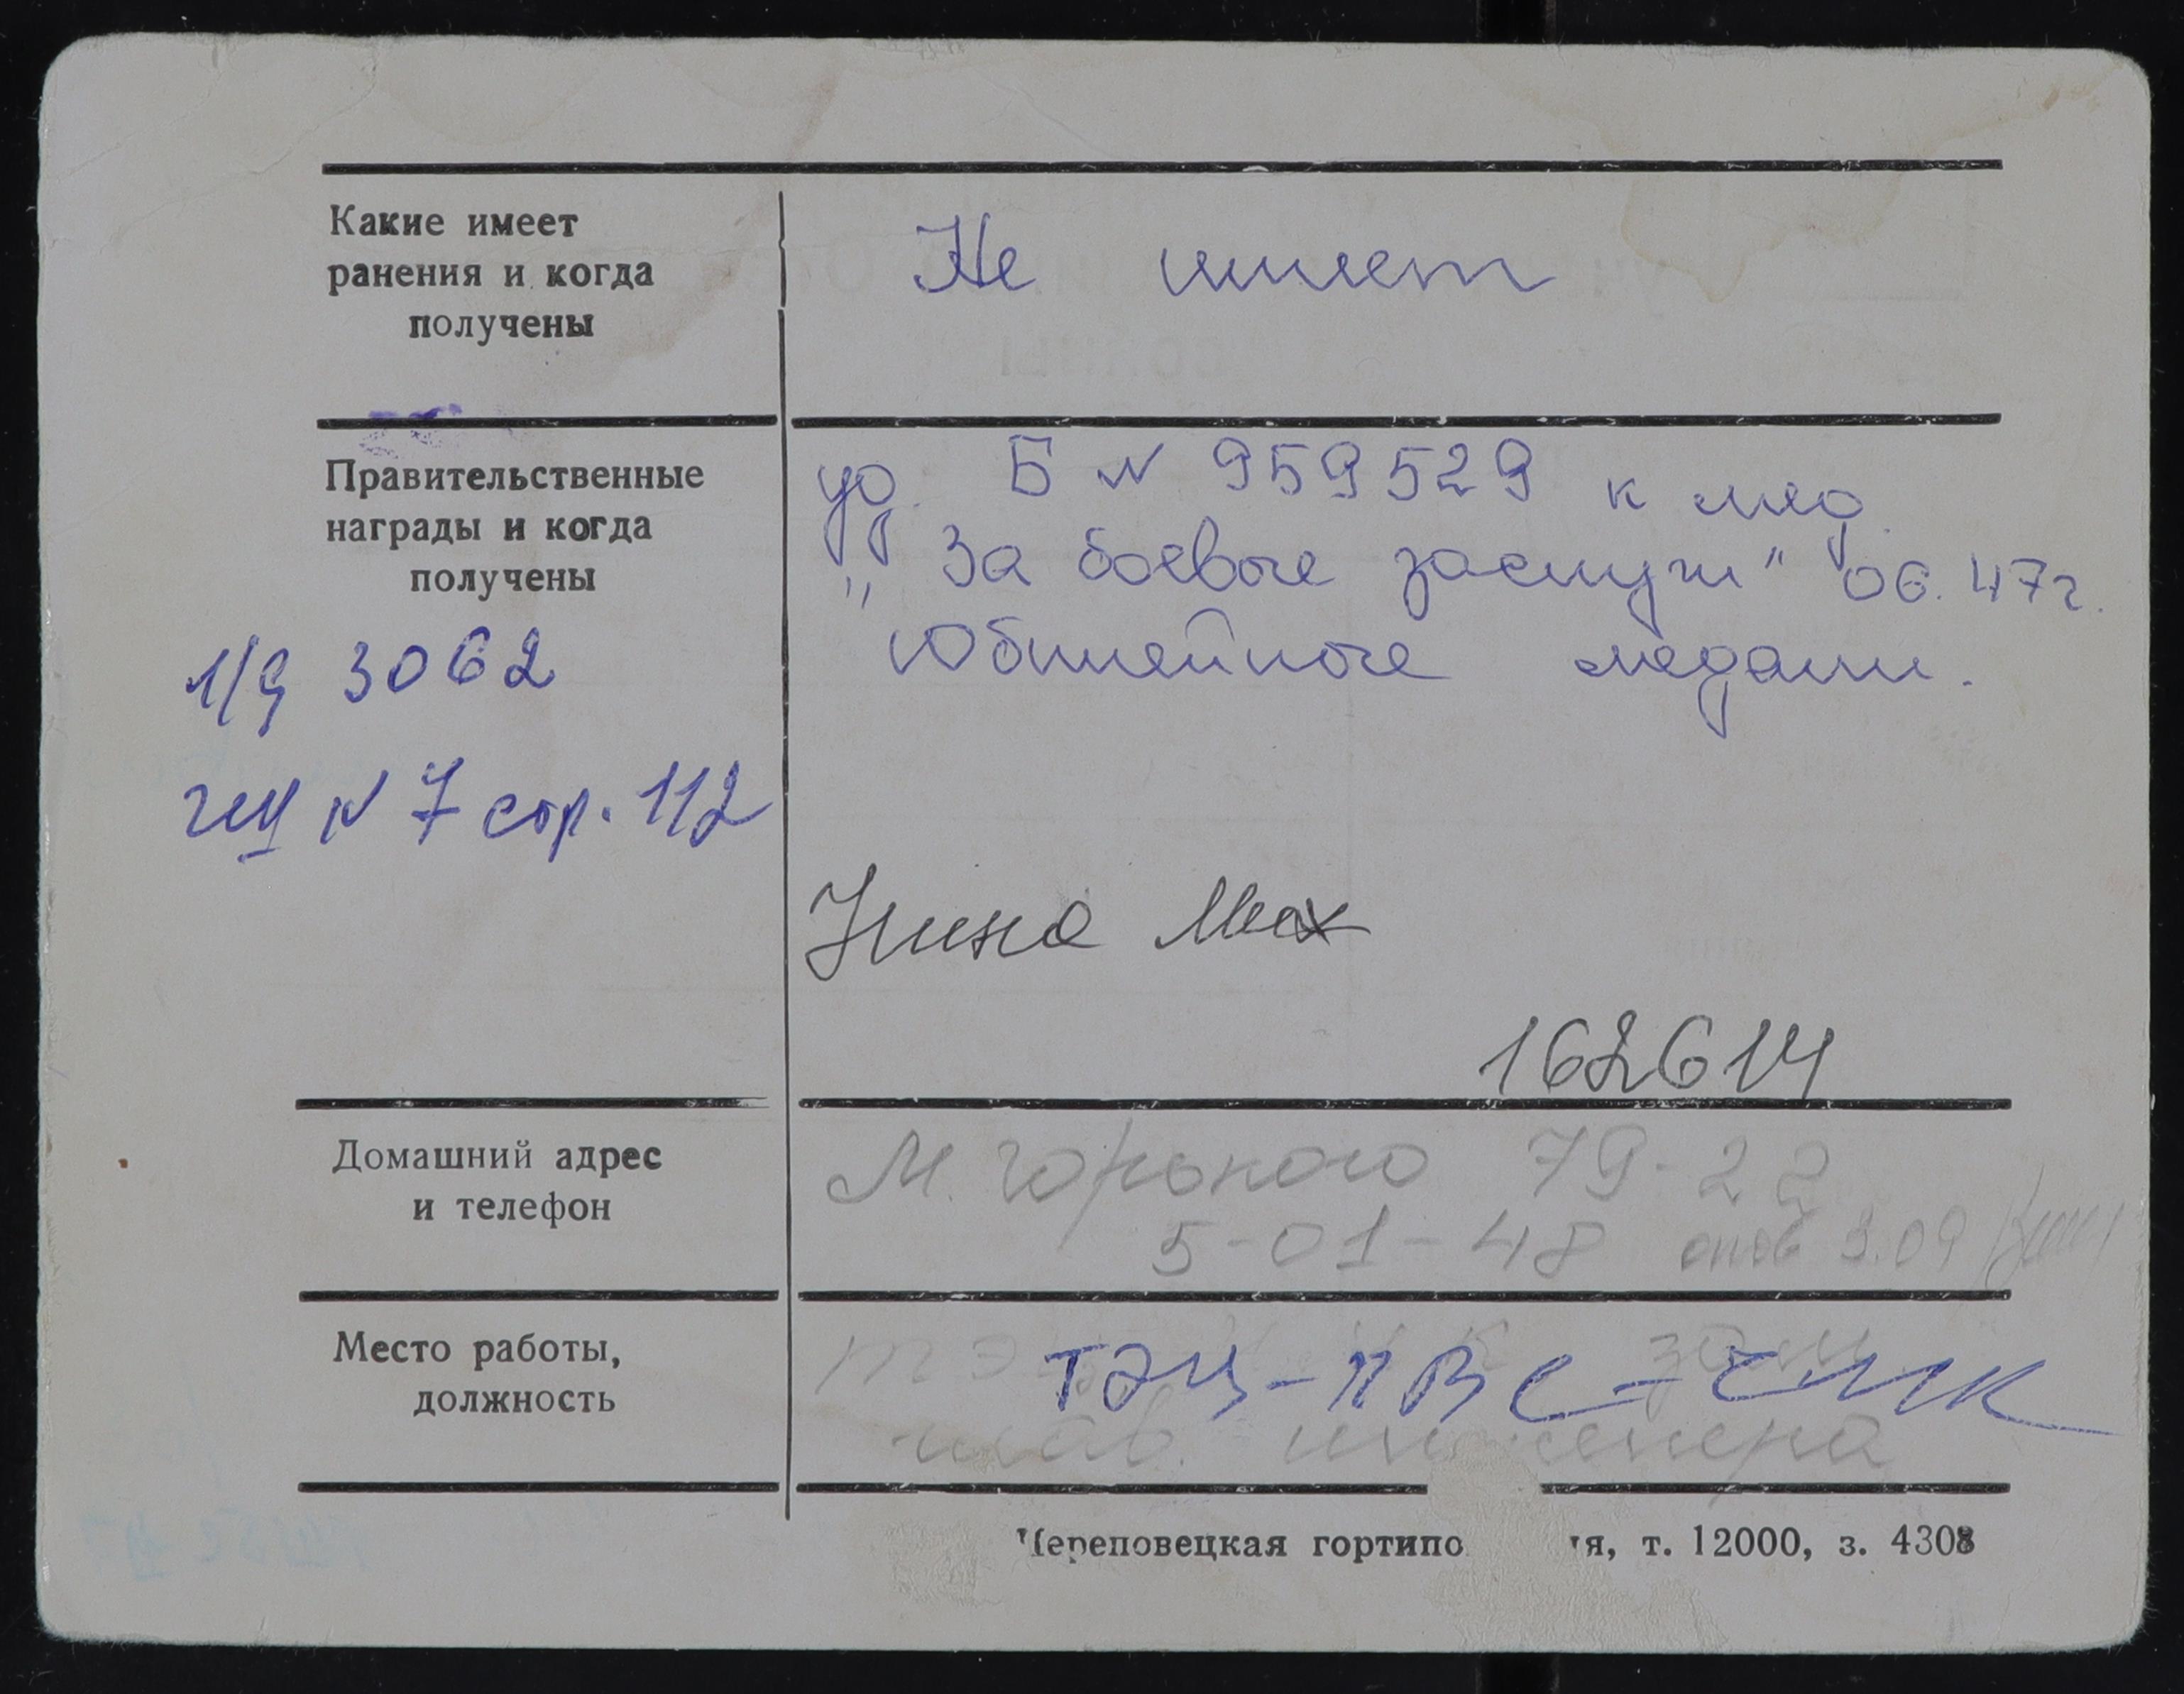 Какие имеет
ранения и когда
получены
Не имеет
Правительственные
награды и когда
получены
уд. Б № 959529 к мед.
„За боевые заслуги" 06.47г.
Юбилейные медали.
л/д 3062
№ 7 стр. 112
Нина Мих
162614
Домашний адрес
и телефон
М. Горького 79-22
5-01-48 3.09
Место работы,
должность
ТЭЦ-ПВС-ЧМК
зам
глав. инженера
Череповецкая гортипо я, т. 12000, з. 4308